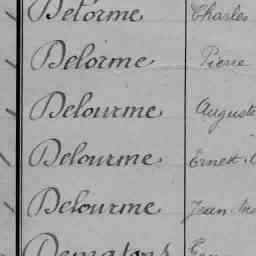 Delorme Charles
Delorme Pierre
Delourme Auguste
Delourme Ernest
Delourme Jean
Dematons